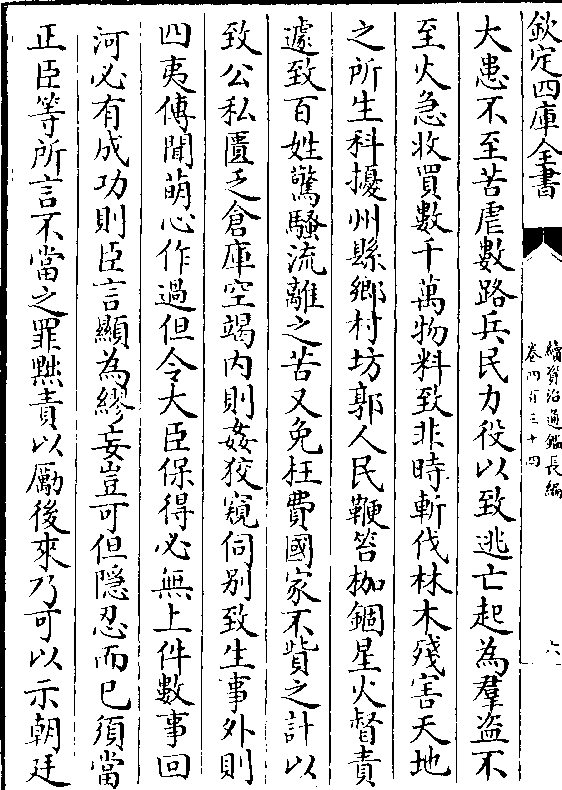 欽定四庫全書
續資治通鑑長編
卷四百三十四
六
大患不至苦虐數路兵民力役以致逃亡起為羣盗不
至火急收買數千萬物料致非時斬伐林木殘害天地
之所生科擾州縣鄉村坊郭人民鞭笞枷錮星火督責
遽致百姓驚騷流離之苦又免枉費國家不貲之計以
致公私匱乏倉庫空竭内則姦狡窺伺别致生事外則
四夷傳聞萌心作過但令大臣保得必無上件數事回
河必有成功則臣言顯為繆妄豈可但隱忍而已須當
正臣等所言不當之罪黜責以勵後來乃可以示朝廷